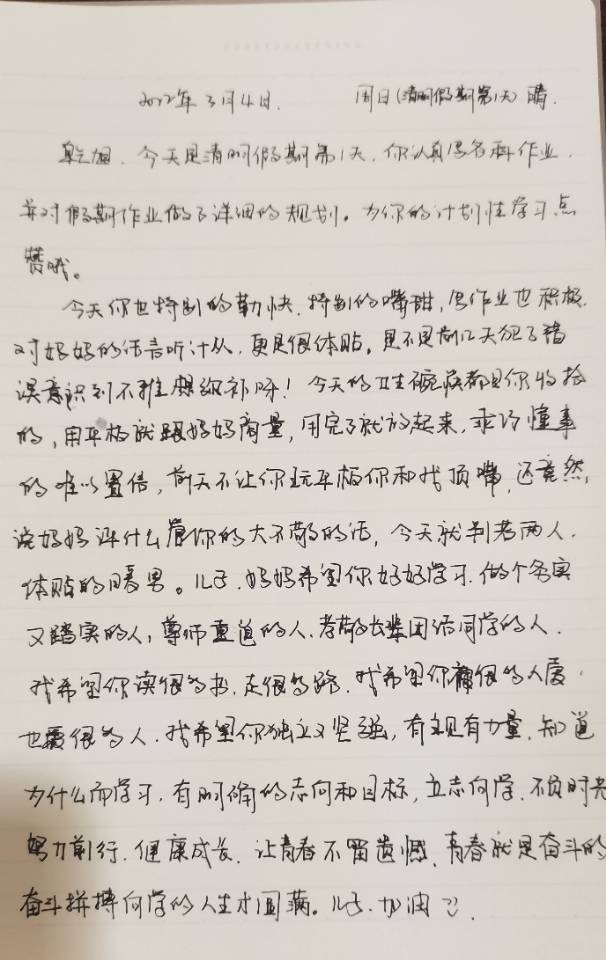 2022年3月4日. 周日(清明假期第1天) 晴.
今天是清明假期第1天, 你认真写各科作业,
并对假期作业做了详细的规划。为你的计划性学习点
赞哦。
今天你也特别的勤快, 特别的嘴甜, 写作业也积极,
对妈妈的话言听计从, 更是很体贴。是不是前几天犯了错
误意识到不难想弥补呀! 今天的卫生碗筷都是你收拾
的, 用平板就跟妈妈商量, 用完了就放起来, 乖巧懂事
的难以置信, 前天不让你玩平板你和我顶嘴, 还竟然,
说妈妈凭什么管你的大不敬的话, 今天就判若两人.
体贴的暖男。儿子, 妈妈希望你好好学习, 做个务实
又踏实的人, 尊师重道的人, 孝敬长辈团结同学的人.
我希望你读很多书, 走很多路, 我希望你被很多人爱,
也爱很多人. 我希望你独立又坚强, 有主见有力量, 知道
为什么而学习, 有明确的志向和目标, 立志向学, 不负时光
努力前行, 健康成长, 让青春不留遗憾, 青春就是奋斗的
奋斗拼搏向学的人生才圆满。儿子, 加油